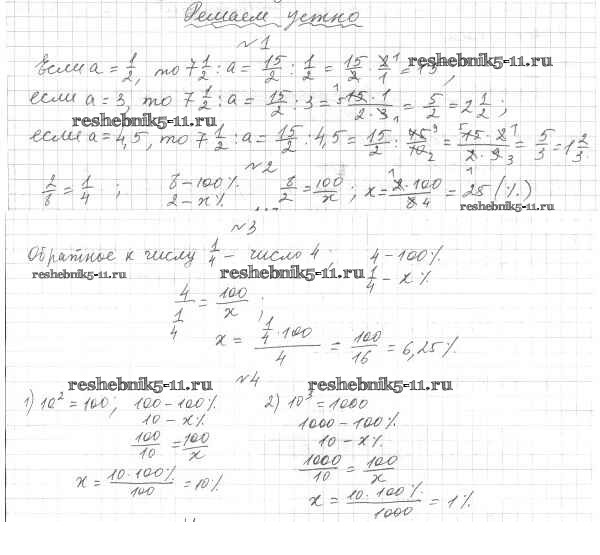 Решаем устно
№1
Если a = 1/2, то 7 1/2 : a = 15/2 : 1/2 = 15/2 · 2/1 = 15,
reshebnik5-11.ru
если a = 3, то 7 1/2 : a = 15/2 : 3 = 15·1/2·3 = 5/2 = 2 1/2;
reshebnik5-11.ru
если a = 4,5, то 7 1/2 : a = 15/2 : 4,5 = 15/2 : 45/10 = 15·2/2·9 = 5/3 = 1 2/3.
№2
2/8 = 1/4; 8 – 100% 8/2 = 100/x; x = 2·100/8 = 25 (%)
2 – x%
reshebnik5-11.ru
№3
Обратное к числу 1/4 – число 4; 4 – 100%
reshebnik5-11.ru reshebnik5-11.ru 1/4 – x%
4/1/4 = 100/x;
x = 1/4 · 100/4 = 100/16 = 6,25%.
№4
reshebnik5-11.ru reshebnik5-11.ru
1) 10² = 100; 100 – 100% 2) 10³ = 1000
10 – x% 1000 – 100%
100/10 = 100/x 10 – x%
1000/10 = 100/x
x = 10·100%/100 = 10%
x = 10·100%/1000 = 1%